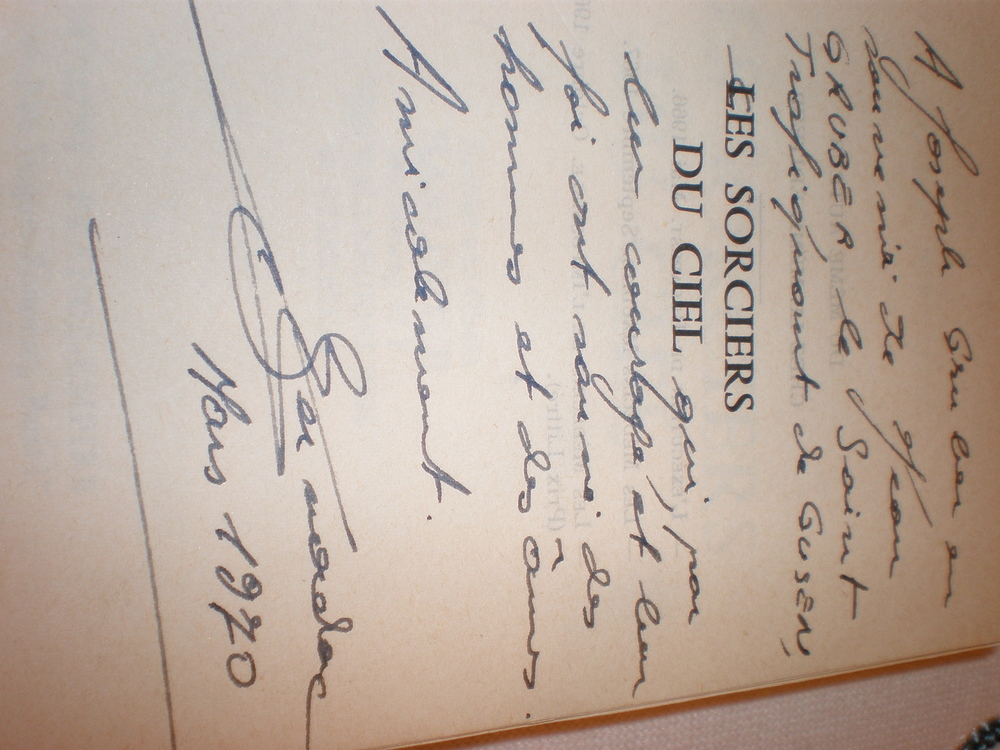 A Joseph Gruber en
souvenir de Jean
GRUBER le Saint
Trafiquant de GUSEN,
LES SORCIERS
DU CIEL
qui, par
leur courage et leur
foi ont sauvé des
hommes et des âmes.
Amicalement.
Bernadac
Mars 1970